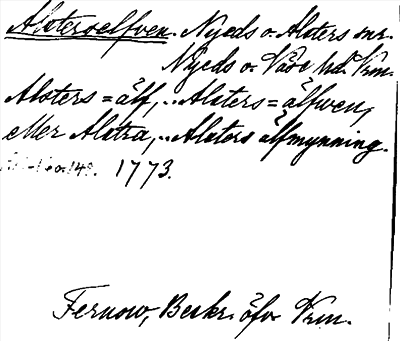 Alsterselfven. Nyeds o. Alsters snr.
Nyeds o. Väse hd. Vrm.
Alsters=älf, .. Alsters=älfwen,
eller Alstra, .. Alsters älfmynning.
1773.
Fernow, Beskr. öfv. Vrm.